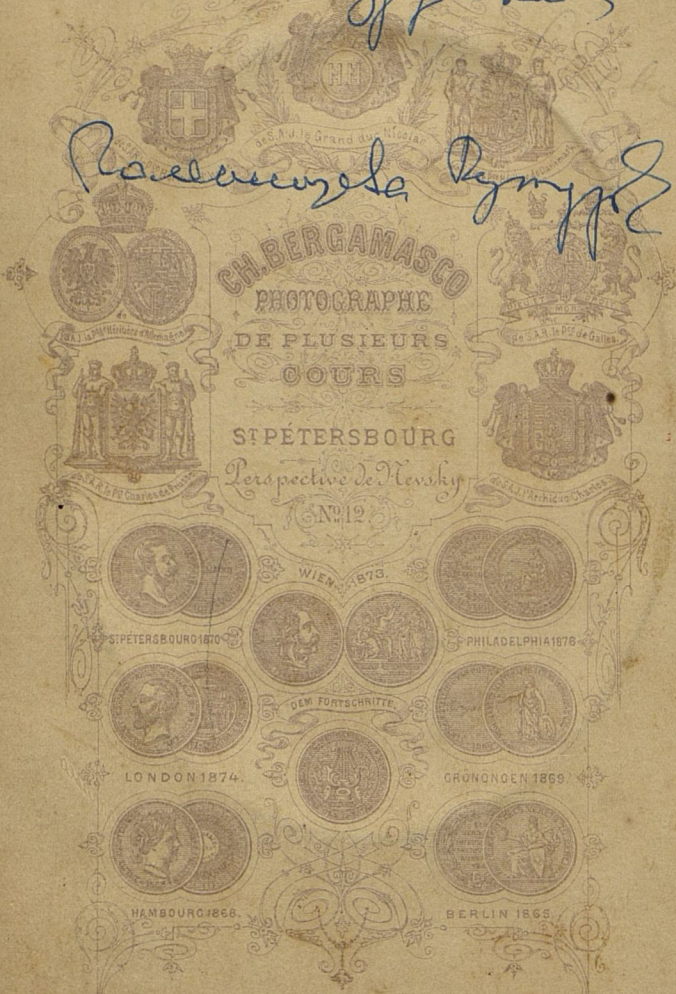 HH
de S.A.J. le Grand duc Nicolas
CH. BERGAMASCO
PHOTOGRAPHE
DE PLUSIEURS
COURS
ST PÉTERSBOURG
Perspective de Nevsky
No 12.
de S.A.R. le Pce de Galles.
de S.A.R. le Pce Charles de Prusse
de S.A.J. l'Archiduc Charles
WIEN 1873.
ST PÉTERSBOURG 1870
PHILADELPHIA 1876
DEM FORTSCHRITTE.
LONDON 1874.
GRONONGEN 1869
HAMBOURG 1868.
BERLIN 1865